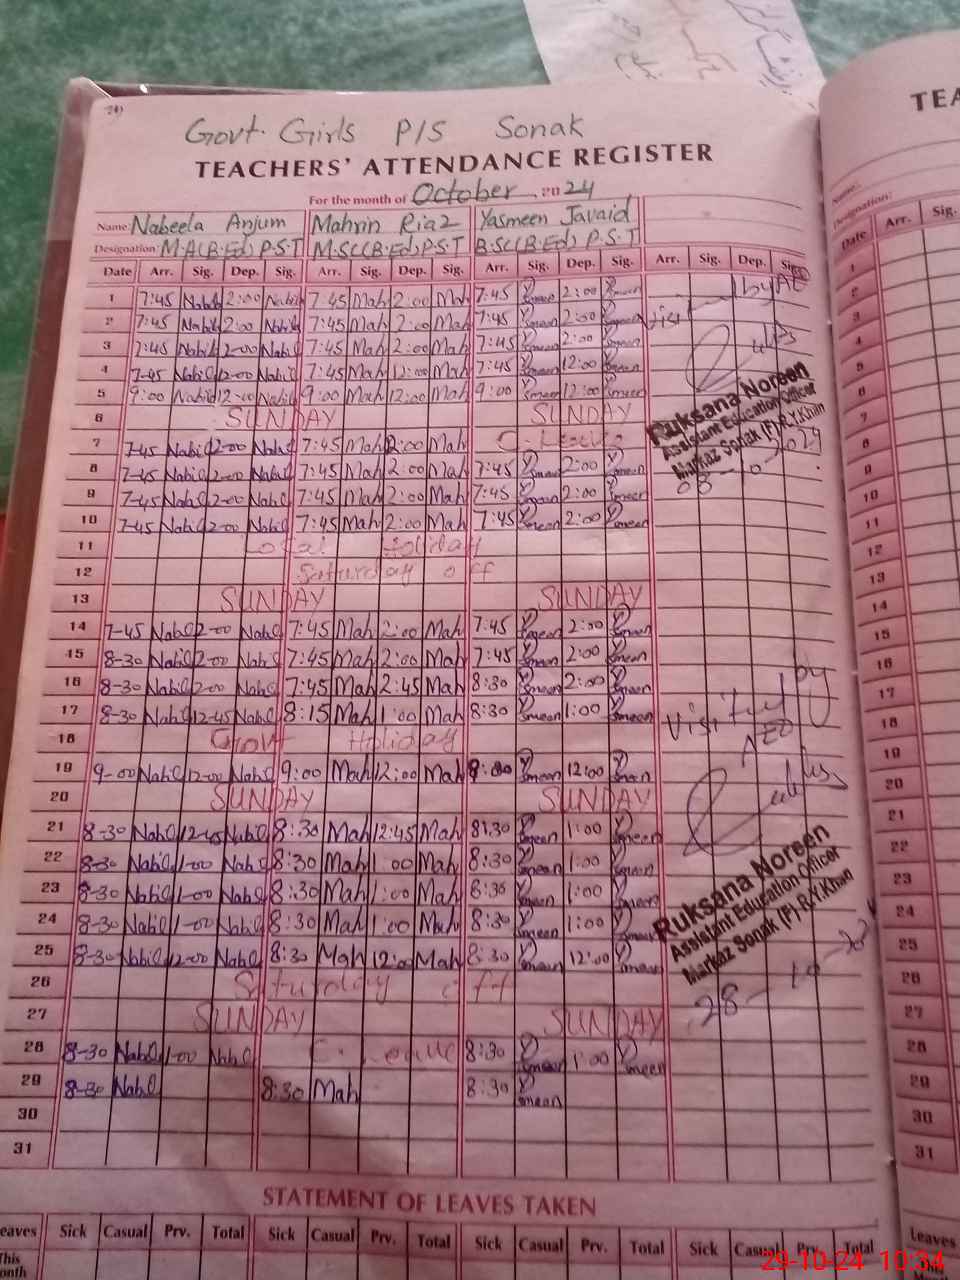 Govt. Girls P/S Sonak
TEACHERS' ATTENDANCE REGISTER
For the month of October 2024
Name Nabeela Anjum Mahrin Riaz Yasmeen Javaid
Designation: M.A(B.Ed) P.S.T M.SC(B.Ed) P.S.T B.SC(B.Ed) P.S.T
Date Arr. Sig. Dep. Sig. Arr. Sig. Dep. Sig. Arr. Sig. Dep. Sig. Arr. Sig. Dep. Sig.
1 7:45 Nabil 2:00 Nabil 7:45 Mah 2:00 Mah 7:45 Ysmeen 2:00 Ysmeen
2 7:45 Nabil 2:00 Nabil 7:45 Mah 2:00 Mah 7:45 Ysmeen 2:00 Ysmeen
3 7:45 Nabil 2-00 Nabil 7:45 Mah 2:00 Mah 7:45 Ysmeen 2:00 Ysmeen
4 7-45 Nabil 12-00 Nabil 7:45 Mah 12:00 Mah 7:45 Ysmeen 12:00 Ysmeen
5 9:00 Nabil 12-00 Nabil 9:00 Mah 12:00 Mah 9:00 Ysmeen 12:00 Ysmeen
6 SUNDAY SUNDAY
7 7-45 Nabil 2-00 Nabil 7:45 Mah 2:00 Mah C-Leave
8 7-45 Nabil 2-00 Nabil 7:45 Mah 2:00 Mah 7:45 Ysmeen 2:00 Ysmeen
9 7-45 Nabil 2-00 Nabil 7:45 Mah 2:00 Mah 7:45 Ysmeen 2:00 Ysmeen
10 7-45 Nabil 2-00 Nabil 7:45 Mah 2:00 Mah 7:45 Ysmeen 2:00 Ysmeen
11 Local Holiday
12 Saturday off
13 SUNDAY SUNDAY
14 7-45 Nabil 2-00 Nabil 7:45 Mah 2:00 Mah 7:45 Ysmeen 2:00 Ysmeen
15 8-30 Nabil 2-00 Nabil 7:45 Mah 2:00 Mah 7:45 Ysmeen 2:00 Ysmeen
16 8-30 Nabil 2-00 Nabil 7:45 Mah 2:45 Mah 8:30 Ysmeen 2:00 Ysmeen
17 8-30 Nabil 12-45 Nabil 8:15 Mah 1:00 Mah 8:30 Ysmeen 1:00 Ysmeen
18 Govt Holiday
19 9-00 Nabil 12-00 Nabil 9:00 Mah 12:00 Mah 9:00 Ysmeen 12:00 Ysmeen
20 SUNDAY SUNDAY
21 8-30 Nabil 12-45 Nabil 8:30 Mah 12:45 Mah 8:30 Ysmeen 1:00 Ysmeen
22 8-30 Nabil 1-00 Nabil 8:30 Mah 1:00 Mah 8:30 Ysmeen 1:00 Ysmeen
23 8-30 Nabil 1-00 Nabil 8:30 Mah 1:00 Mah 8:30 Ysmeen 1:00 Ysmeen
24 8-30 Nabil 1-00 Nabil 8:30 Mah 1:00 Mah 8:30 Ysmeen 1:00 Ysmeen
25 8-30 Nabil 12-00 Nabil 8:30 Mah 12:00 Mah 8:30 Ysmeen 12:00 Ysmeen
26 Saturday off
27 SUNDAY SUNDAY
28 8-30 Nabil 1-00 Nabil C-Leave 8:30 Ysmeen 1:00 Ysmeen
29 8-30 Nabil 8:30 Mah 8:30 Ysmeen
30
31
Visit by AEO
Ruksana Noreen
Assistant Education Officer
Markaz Sonak (F) R.Y.Khan
08-10-2024
Visit by
AEO
Ruksana Noreen
Assistant Education Officer
Markaz Sonak (F) R.Y.Khan
28-10-20
STATEMENT OF LEAVES TAKEN
Leaves Sick Casual Prv. Total Sick Casual Prv. Total Sick Casual Prv. Total Sick Casual Prv. Total
This
TEA
Name:
Designation:
Date Arr. Sig.
1
2
3
4
5
6
7
8
9
10
11
12
13
14
15
16
17
18
19
20
21
22
23
24
25
26
27
28
29
30
31
Leaves
29-10-24 10:34